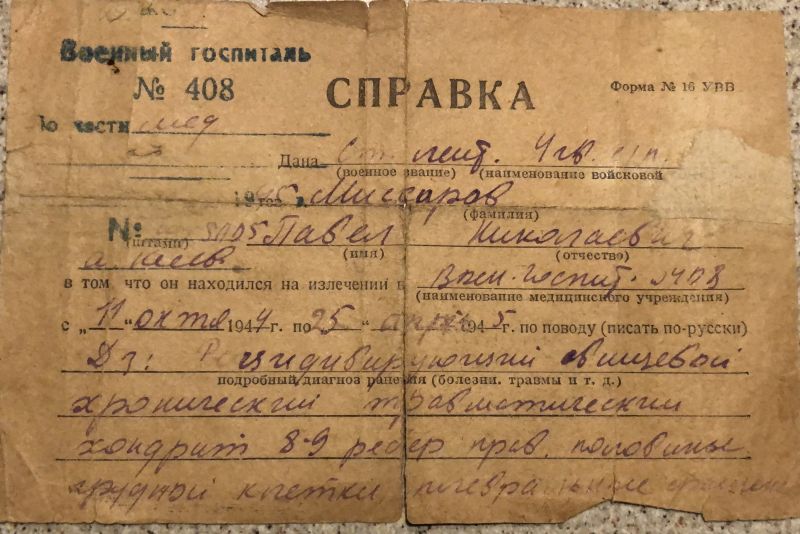 Военный госпиталь
№ 408
СПРАВКА
Форма № 16 УВВ
По части мед
Дана Ст. лейт. 4 гв.
(военное звание) (наименование войсковой
1945 г.
(фамилия)
№ 5105 Павел Николаевич
(штамп) (имя) (отчество)
г. Киев
в том что он находился на излечении в Воен. Госпит. 408
(наименование медицинского учреждения)
с „11“ октя 1944 г. по 25 “ апр 1945 г. по поводу (писать по-русски)
Дз: Рецидивирующий свищевой
подробный диагноз ранения (болезни, травмы и т. д.)
хронический травматический
хондрит 8-9 ребер прав. половины
грудной клетки, плевральные